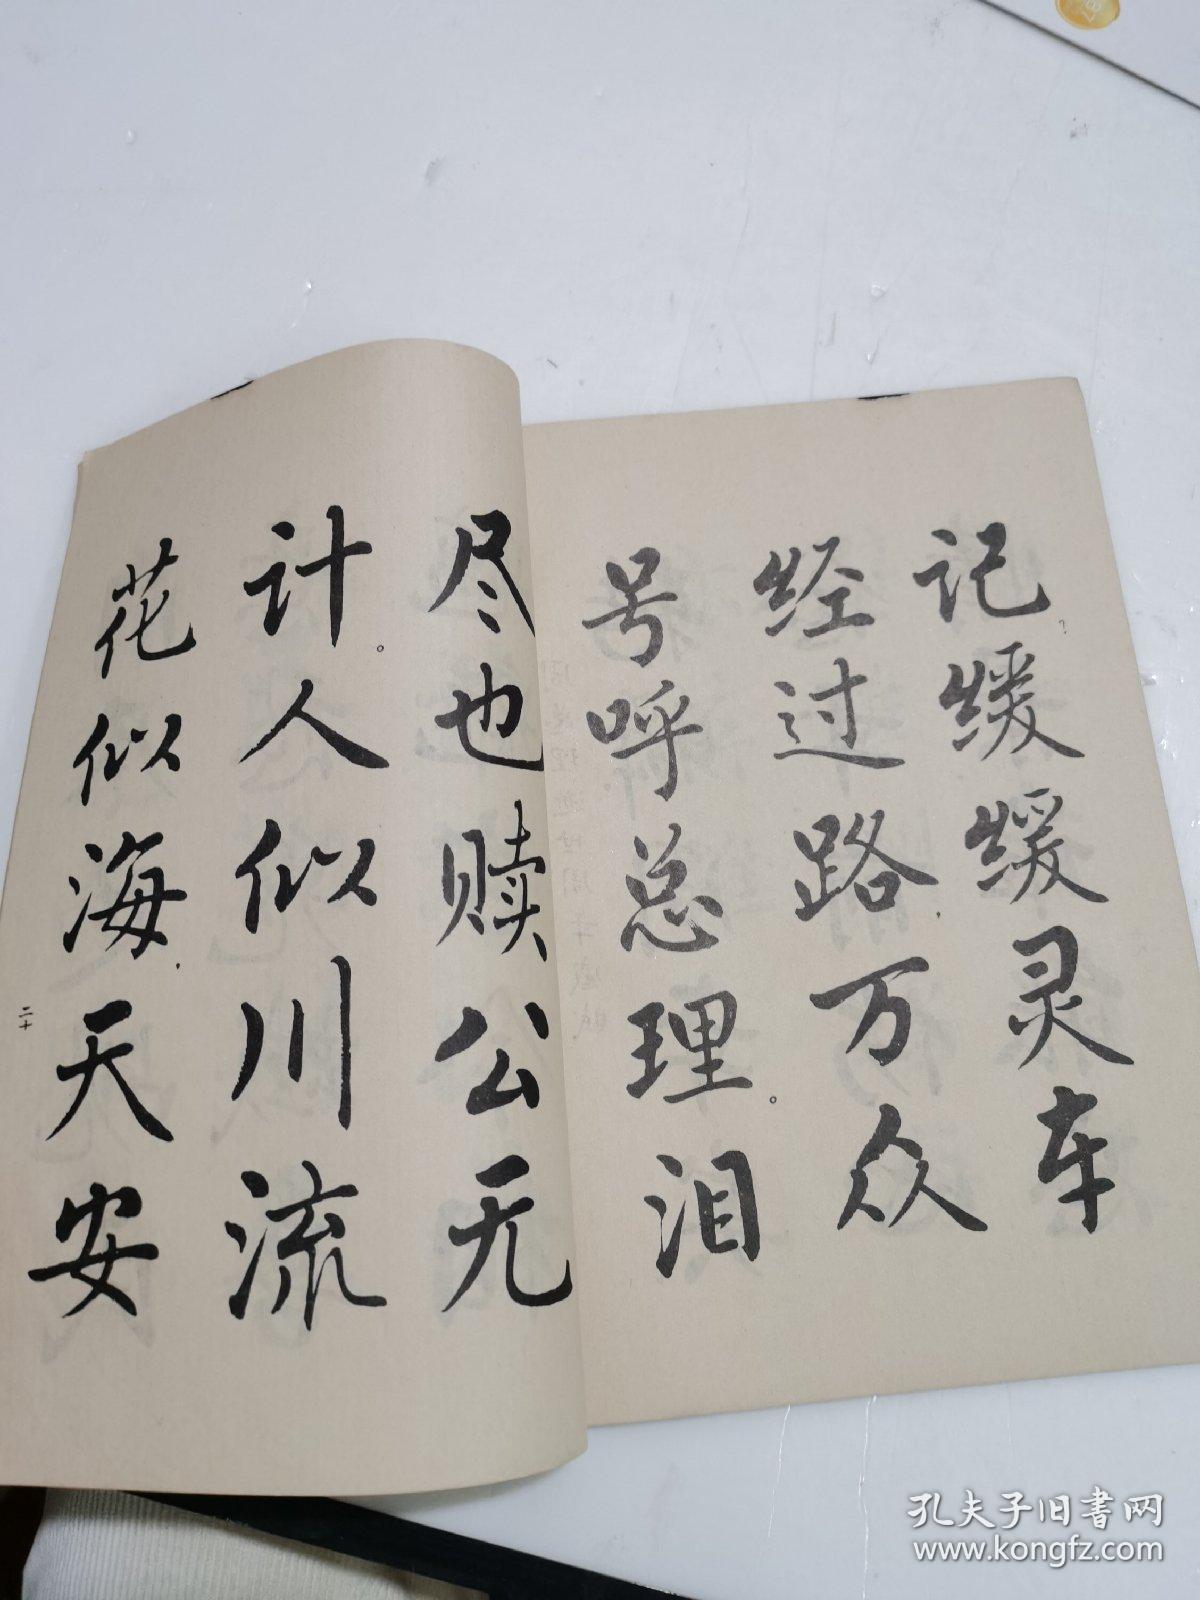 记缓缓灵车
经过路万众
号呼总理。泪
尽也赎公无
计。人似川流
花似海天安
二十
孔夫子旧书网
www.kongfz.com